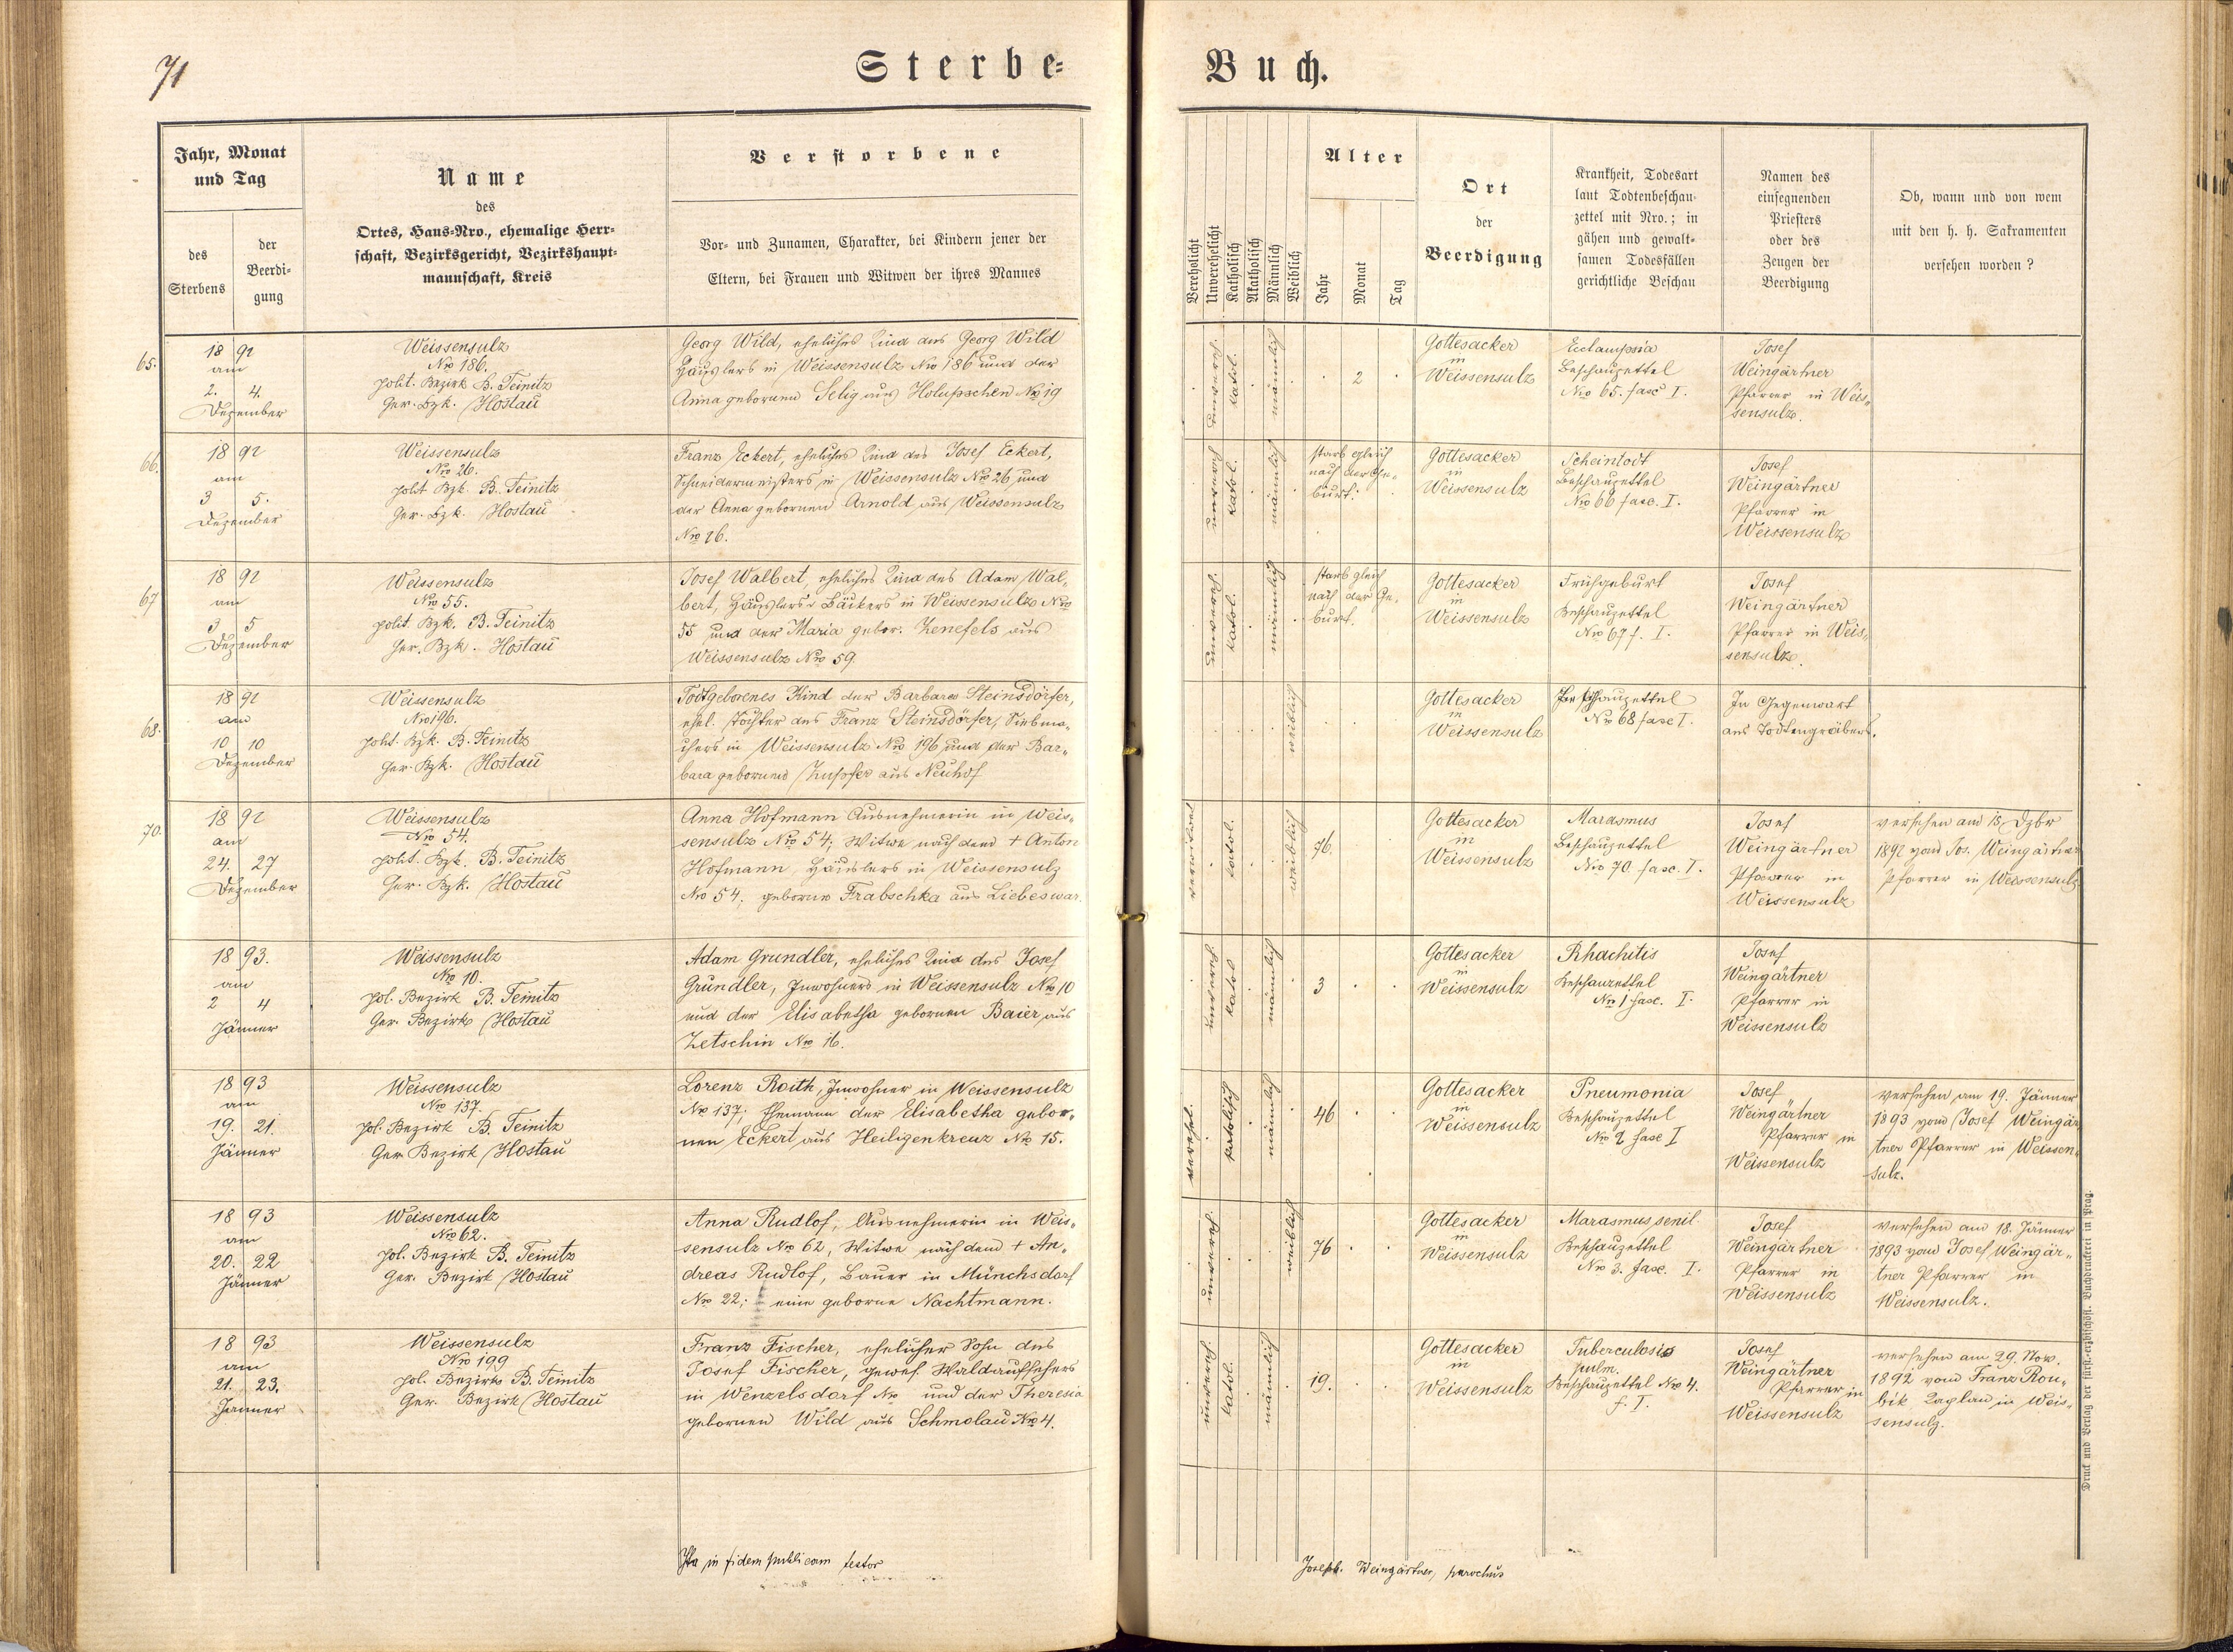 71
Sterbe=
Buch.
Jahr, Monat
und Tag
des
Sterbens
der
Beerdi-
gung
Name
des
Ortes, Haus-Nro., ehemalige Herr-
schaft, Bezirksgericht, Bezirkshaupt-
mannschaft, Kreis
Verstorbene
Vor- und Zunamen, Charakter, bei Kindern jener der
Eltern, bei Frauen und Witwen der ihres Mannes
Verehelicht
Unverehelicht
Katholisch
Akatholisch
Männlich
Weiblich
Alter
Jahr
Monat
Tag
Ort
der
Beerdigung
Krankheit, Todesart
laut Todtenbeschau-
zettel mit Nro.; in
gähen und gewalt-
samen Todesfällen
gerichtliche Beschau
Namen des
einsegnenden
Priesters
oder des
Zeugen der
Beerdigung
Ob, wann und von wem
mit den h. h. Sakramenten
versehen worden?
65.
18 92
am
2. 4.
Dezember
Weissensulz
Nro 186.
polit. Bezirk B. Teinitz
Ger. Bzk. Hostau
Georg Wild, eheliches Kind des Georg Wild
Häuslers in Weissensulz Nro 186 und der
Anna gebornen Selig aus Holupschen Nro 19
unvereh.
katol.
männlich
2
Gottesacker
in
Weissensulz
Ecclampsia
Beschauzettel
Nro 65. fasc I.
Josef
Weingärtner
Pfarrer in Weis-
sensulz.
66.
18 92
am
3 5.
Dezember
Weissensulz
Nro 26.
polit Bzk. B. Teinitz
Ger. Bzk. Hostau
Franz Eckert, eheliches Kind des Josef Eckert,
Schneidermeisters in Weissensulz Nro 26 und
der Anna gebornen Arnold aus Weissensulz
Nro 26.
unvereh
katol.
männlich
starb gleich
nach der Ge-
burt.
Gottesacker
in
Weissensulz
Scheintodt
Beschauzettel
Nro 66 fasc. I.
Josef
Weingärtner
Pfarrer in
Weissensulz
67
18 92
am
3 5
Dezember
Weissensulz
Nro 55.
polit. Bzk. B. Teinitz
Ger. Bzk. Hostau
Josef Walbert, eheliches Kind des Adam Wal-
bert, Häuslers u Bäckers in Weissensulz Nro
55 und der Maria gebor. Zenefels aus
Weissensulz Nro 59.
unvereh.
katol.
männlich
starb gleich
nach der Ge-
burt.
Gottesacker
in
Weissensulz
Frühgeburt
Beschauzettel
Nro 67 f. I.
Josef
Weingärtner
Pfarrer in Weis-
sensulz.
68.
18 92
am
10 10
Dezember
Weissensulz
Nro 196.
polit. Bzk. B. Teinitz
Ger. Bzk. Hostau
Todtgeborenes Kind der Barbara Steinsdörfer,
ehel. Tochter des Franz Steinsdörfer, Siebma-
chers in Weissensulz Nro 196 und der Bar-
bara gebornen Kupfer aus Neuhof
weiblich
Gottesacker
in
Weissensulz
Beschauzettel
Nro 68 fasc I.
In Gegenwart
des Todtengräbers.
70.
18 92
am
24. 27
Dezember
Weissensulz
Nro 54.
polit. Bzk. B. Teinitz
Ger. Bzk. Hostau
Anna Hofmann Ausnehmerin in Weis-
sensulz Nro 54; Witwe nach dem + Anton
Hofmann, Häuslers in Weissensulz
Nro 54, geborne Frabschka aus Liebeswar.
verwitwet
katol.
weiblich
76.
Gottesacker
in
Weissensulz
Marasmus
Beschauzettel
Nro 70. fasc. I.
Josef
Weingärtner
Pfarrer in
Weissensulz
versehen am 15 Dzbr
1892 vom Jos. Weingärtner
Pfarrer in Weissensulz
18 93.
am
2 4
Jänner
Weissensulz
Nro 10.
pol. Bezirk B. Teinitz
Ger. Bezirk Hostau
Adam Grundler, eheliches Kind des Josef
Grundler, Inwohners in Weissensulz Nro 10
und der Elisabetha gebornen Baier aus
Zetschin Nro 16.
unvereh.
katol
männlich
3
Gottesacker
in
Weissensulz
Rhachitis
Beschauzettel
Nro 1 fasc. I.
Josef
Weingärtner
Pfarrer in
Weissensulz
18 93
am
19. 21.
Jänner
Weissensulz
Nro 137.
pol. Bezirk B. Teinitz
Ger. Bezirk Hostau
Lorenz Roith, Inwohner in Weissensulz
Nro 137; Ehemann der Elisabetha gebor-
nen Eckert aus Heiligenkreuz Nro 15.
verehel.
katolisch
männlich
46
Gottesacker
in
Weissensulz
Pneumonia
Beschauzettel
Nro 2 fasc I
Josef
Weingärtner
Pfarrer in
Weissensulz
versehen am 19. Jänner
1893 vom Josef Weingär-
tner Pfarrer in Weissen-
sulz.
18 93
am
20. 22
Jänner
Weissensulz
Nro 62.
pol. Bezirk B. Teinitz
Ger. Bezirk Hostau
Anna Rudlof, Ausnehmerin in Weis-
sensulz Nro 62, Witwe nach dem + An-
dreas Rudlof, Bauer in Münchsdorf
Nro 22; eine geborne Nachtmann.
unvereh.
weiblich
76
Gottesacker
in
Weissensulz
Marasmus senil
Beschauzettel
Nro 3. fasc. I.
Josef
Weingärtner
Pfarrer in
Weissensulz
versehen am 18. Jänner
1893 vom Josef Weingär-
tner Pfarrer in
Weissensulz.
18 93
am
21. 23.
Jänner
Weissensulz
Nro 199
pol. Bezirk B. Teinitz
Ger. Bezirk Hostau
Franz Fischer, ehelicher Sohn des
Josef Fischer, gewes. Waldaufsehers
in Wenzelsdorf Nro und der Theresia
gebornen Wild aus Schmolau Nro 4.
unvereh.
katol.
männlich
19.
Gottesacker
in
Weissensulz
Tuberculosis
pulm.
Beschauzettel Nro 4.
f. I.
Josef
Weingärtner
Pfarrer in
Weissensulz
versehen am 29. Nov.
1892 vom Franz Rou-
bik Kaplan in Weis-
sensulz.
Ita in fidem publicam testor
Joseph. Weingärtner, parochus
Druck und Verlag der fürst.-erzbischöfl. Buchdruckerei in Prag.